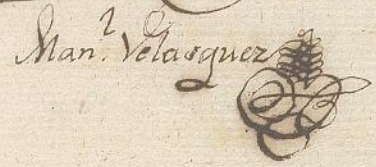 Man.l Velasquez